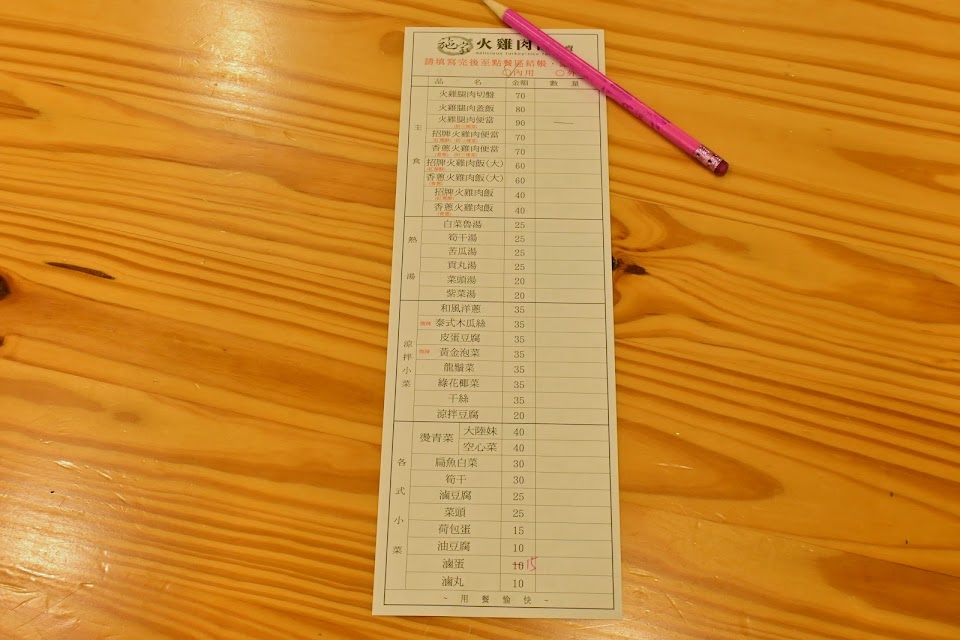 火雞肉
請填寫完後至點餐區結帳
○內用 ○外
品名 金額 數量
主食
火雞腿肉切盤 70
火雞腿肉蓋飯 80
火雞腿肉便當 90 一
招牌火雞肉便當 70
香蔥火雞肉便當 70
招牌火雞肉飯(大) 60
香蔥火雞肉飯(大) 60
招牌火雞肉飯 40
香蔥火雞肉飯 40
熱湯
白菜魯湯 25
筍干湯 25
苦瓜湯 25
貢丸湯 25
菜頭湯 20
紫菜湯 20
涼拌小菜
和風洋蔥 35
泰式木瓜絲 35
皮蛋豆腐 35
黃金泡菜 35
龍鬚菜 35
綠花椰菜 35
干絲 35
涼拌豆腐 20
各式小菜
燙青菜 大陸妹 40
空心菜 40
扁魚白菜 30
筍干 30
滷豆腐 25
菜頭 25
荷包蛋 15
油豆腐 10
滷蛋 10 15
滷丸 10
~用餐愉快~